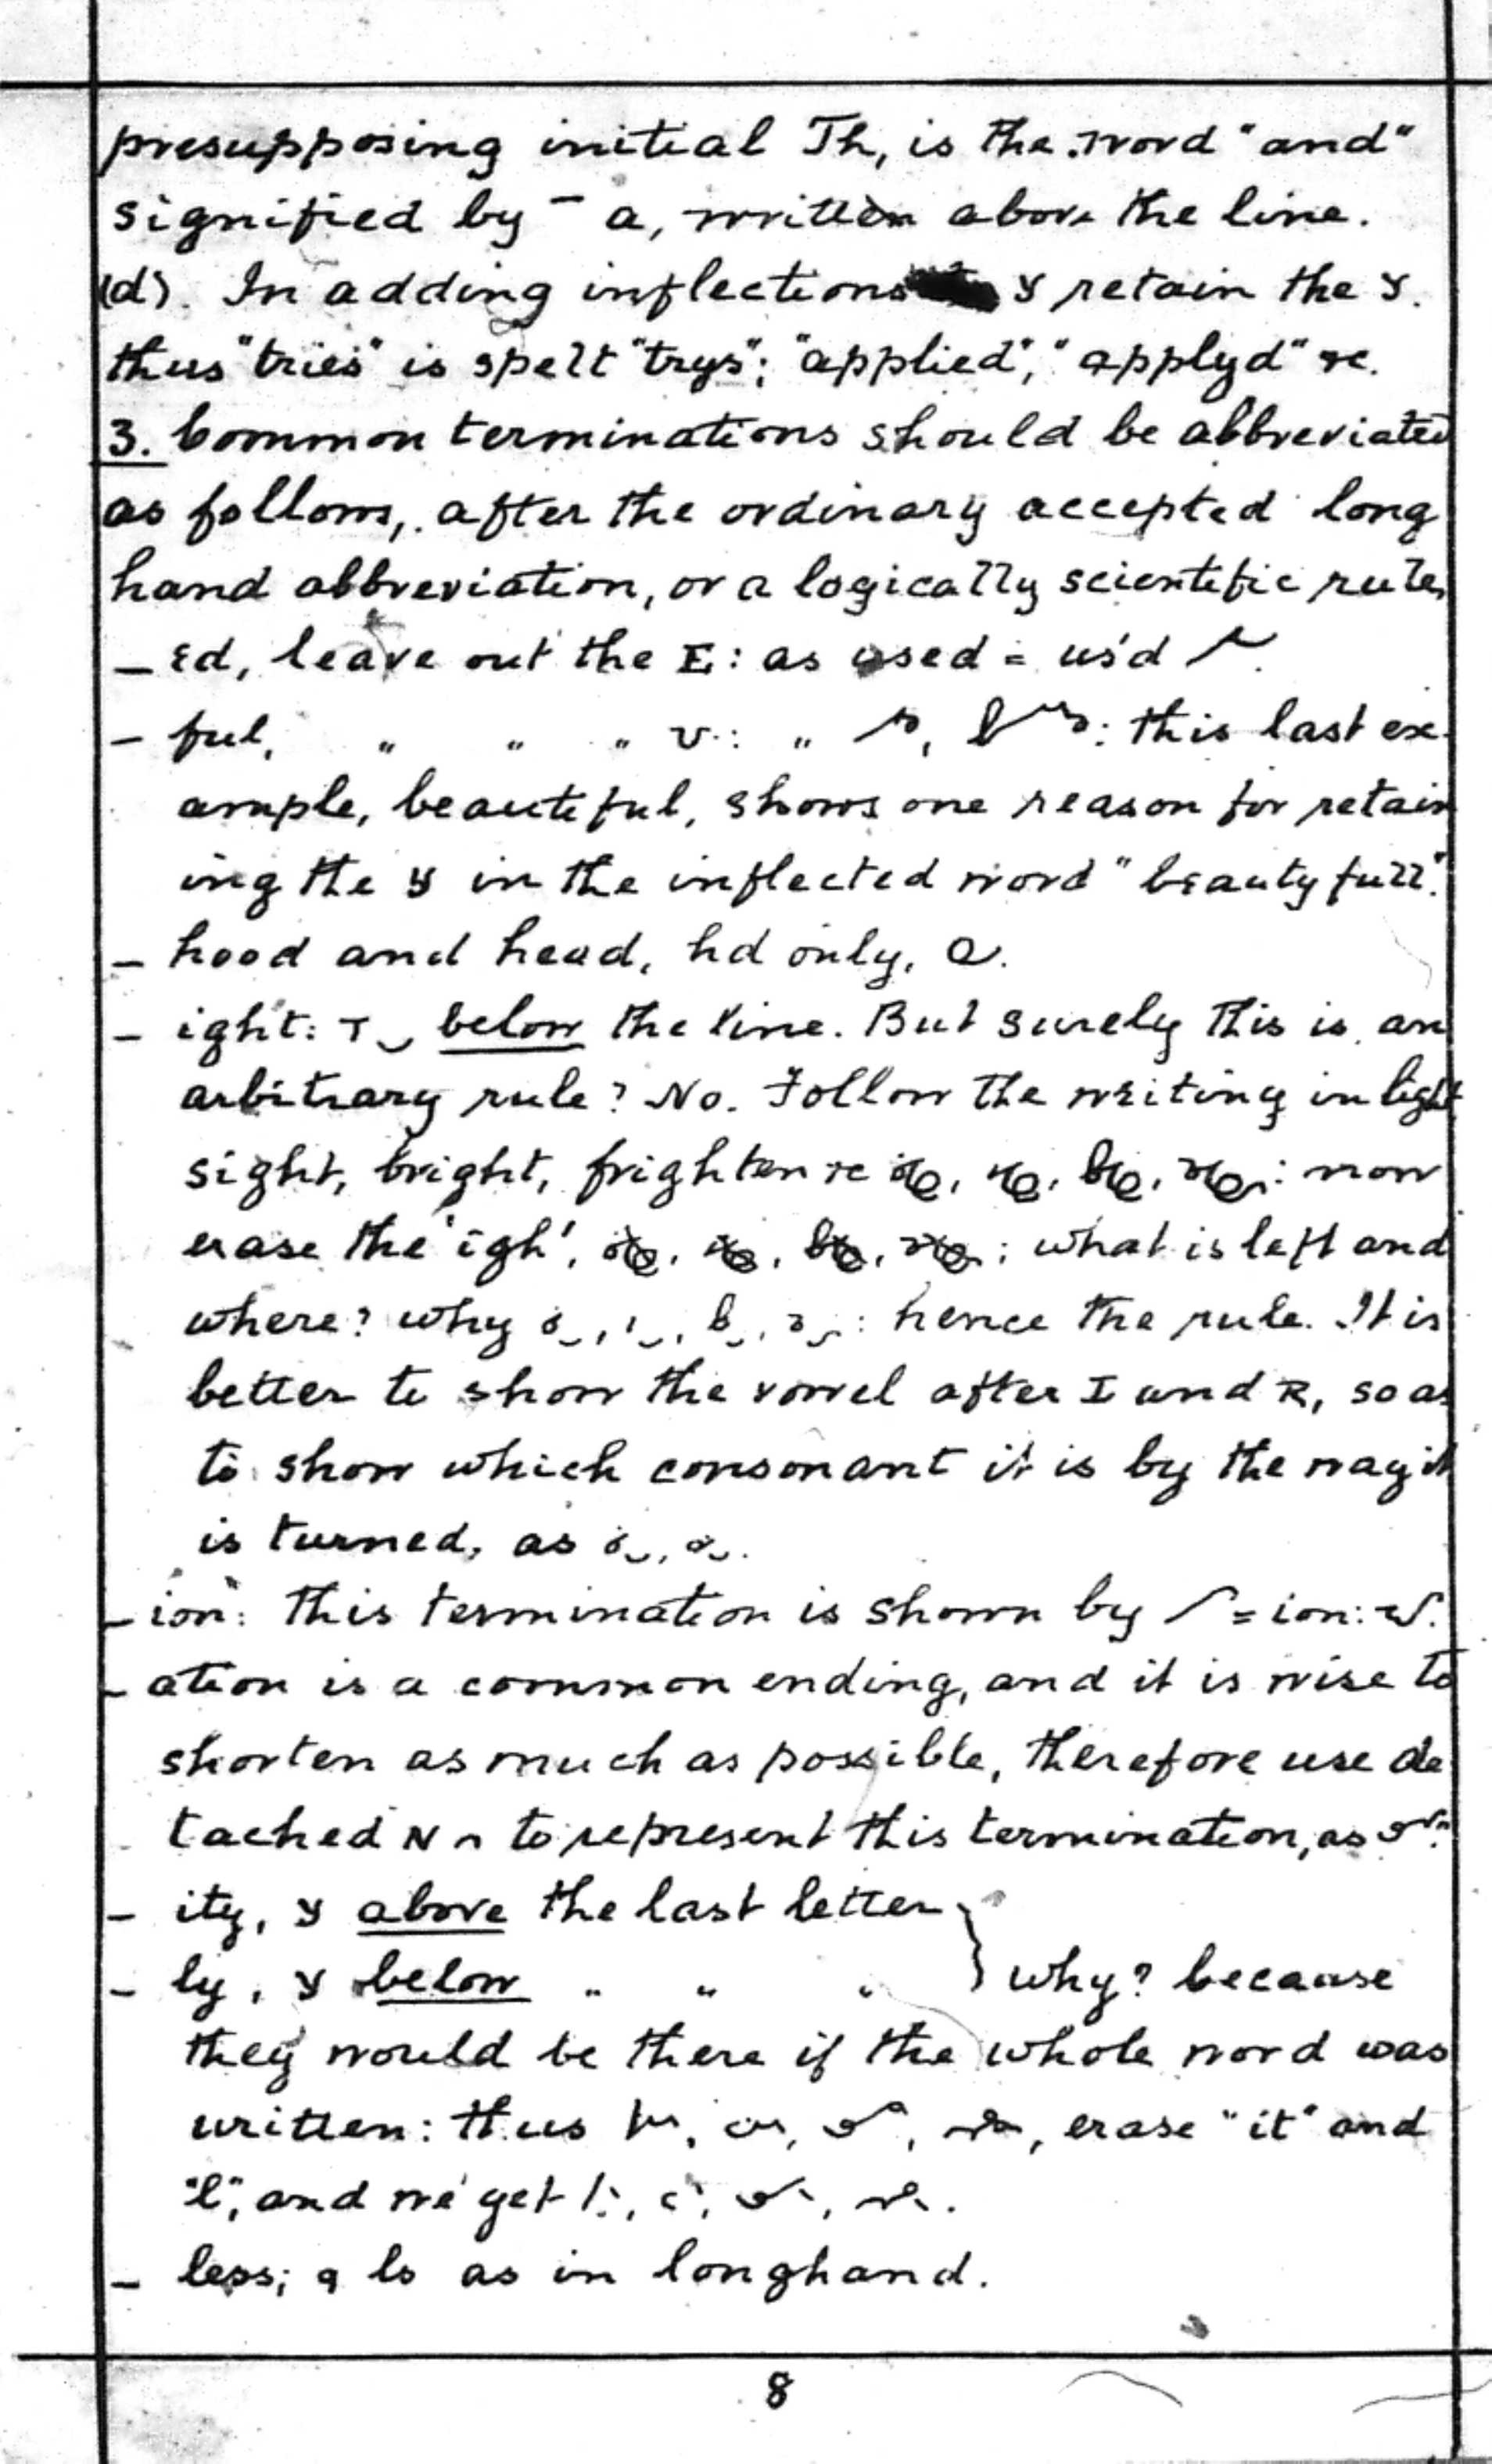 presupposing initial Th, is the word "and"
signified by – a, written above the line.
(d). In adding inflections y retain the y.
thus "tries" is spelt "trys"; "applied", "applyd" &c.
3. Common terminations should be abbreviated
as follows, after the ordinary accepted long
hand abbreviation, or a logically scientific rule,
– Ed, leave out the E: as used = us'd
– ful, " " " U: " , : this last ex-
ample, beautiful, shows one reason for retain
ing the y in the inflected word "beautyfull".
– hood and head, hd only,
– ight: T below the line. But surely this is an
arbitrary rule? No. Follow the writing in light
sight, bright, frighten &c : now
erase the 'igh', ; what is left and
where? why : hence the rule. It is
better to show the vowel after I and R, so as
to show which consonant it is by the way it
is turned, as
– ion: this termination is shown by = ion:
– ation is a common ending, and it is wise to
shorten as much as possible, therefore use de
tached N to represent this termination, as
– ity, y above the last letter
– ly, y below " " " } why? because
they would be there if the whole word was
written: thus , erase "it" and
"l", and we get
– less; ls as in longhand.
8